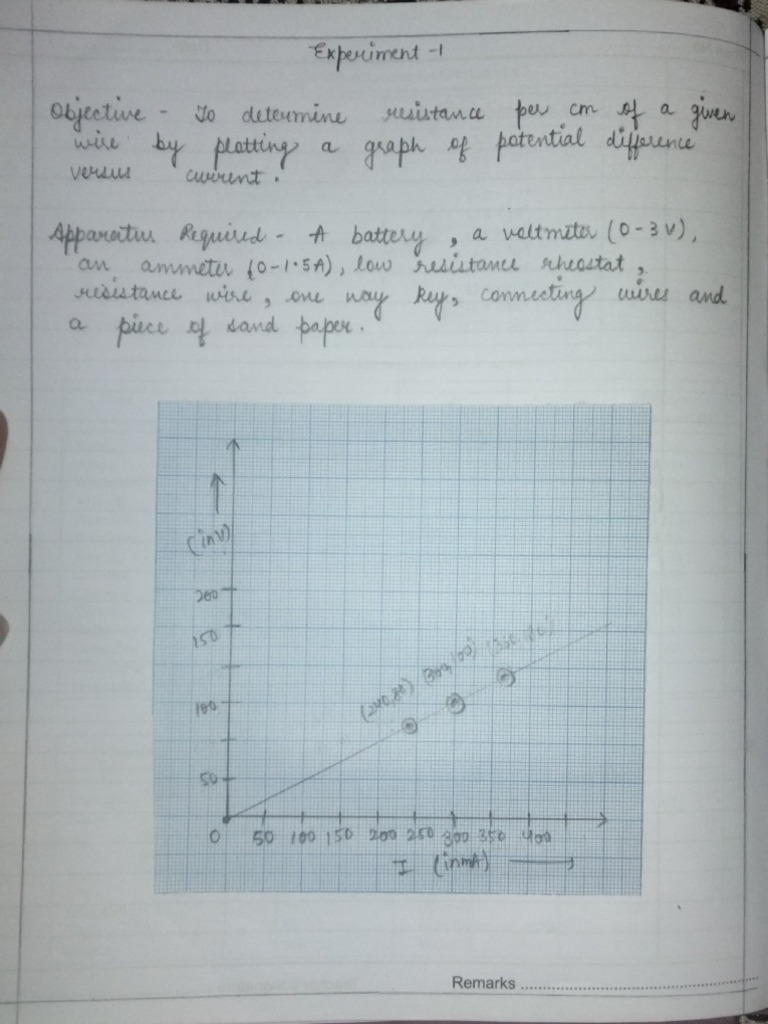 Experiment -1
Objective - To determine resistance per cm of a given
wire by plotting a graph of potential difference
versus current.
Apparatus Required - A battery, a voltmeter (0-3V),
an ammeter (0-1.5A), low resistance rheostat,
resistance wire, one way key, connecting wires and
a piece of sand paper.
(inV)
200
150
(240,80) (300,100)
100
50
0 50 100 150 200 250 300 350 400
I (inmA)
Remarks